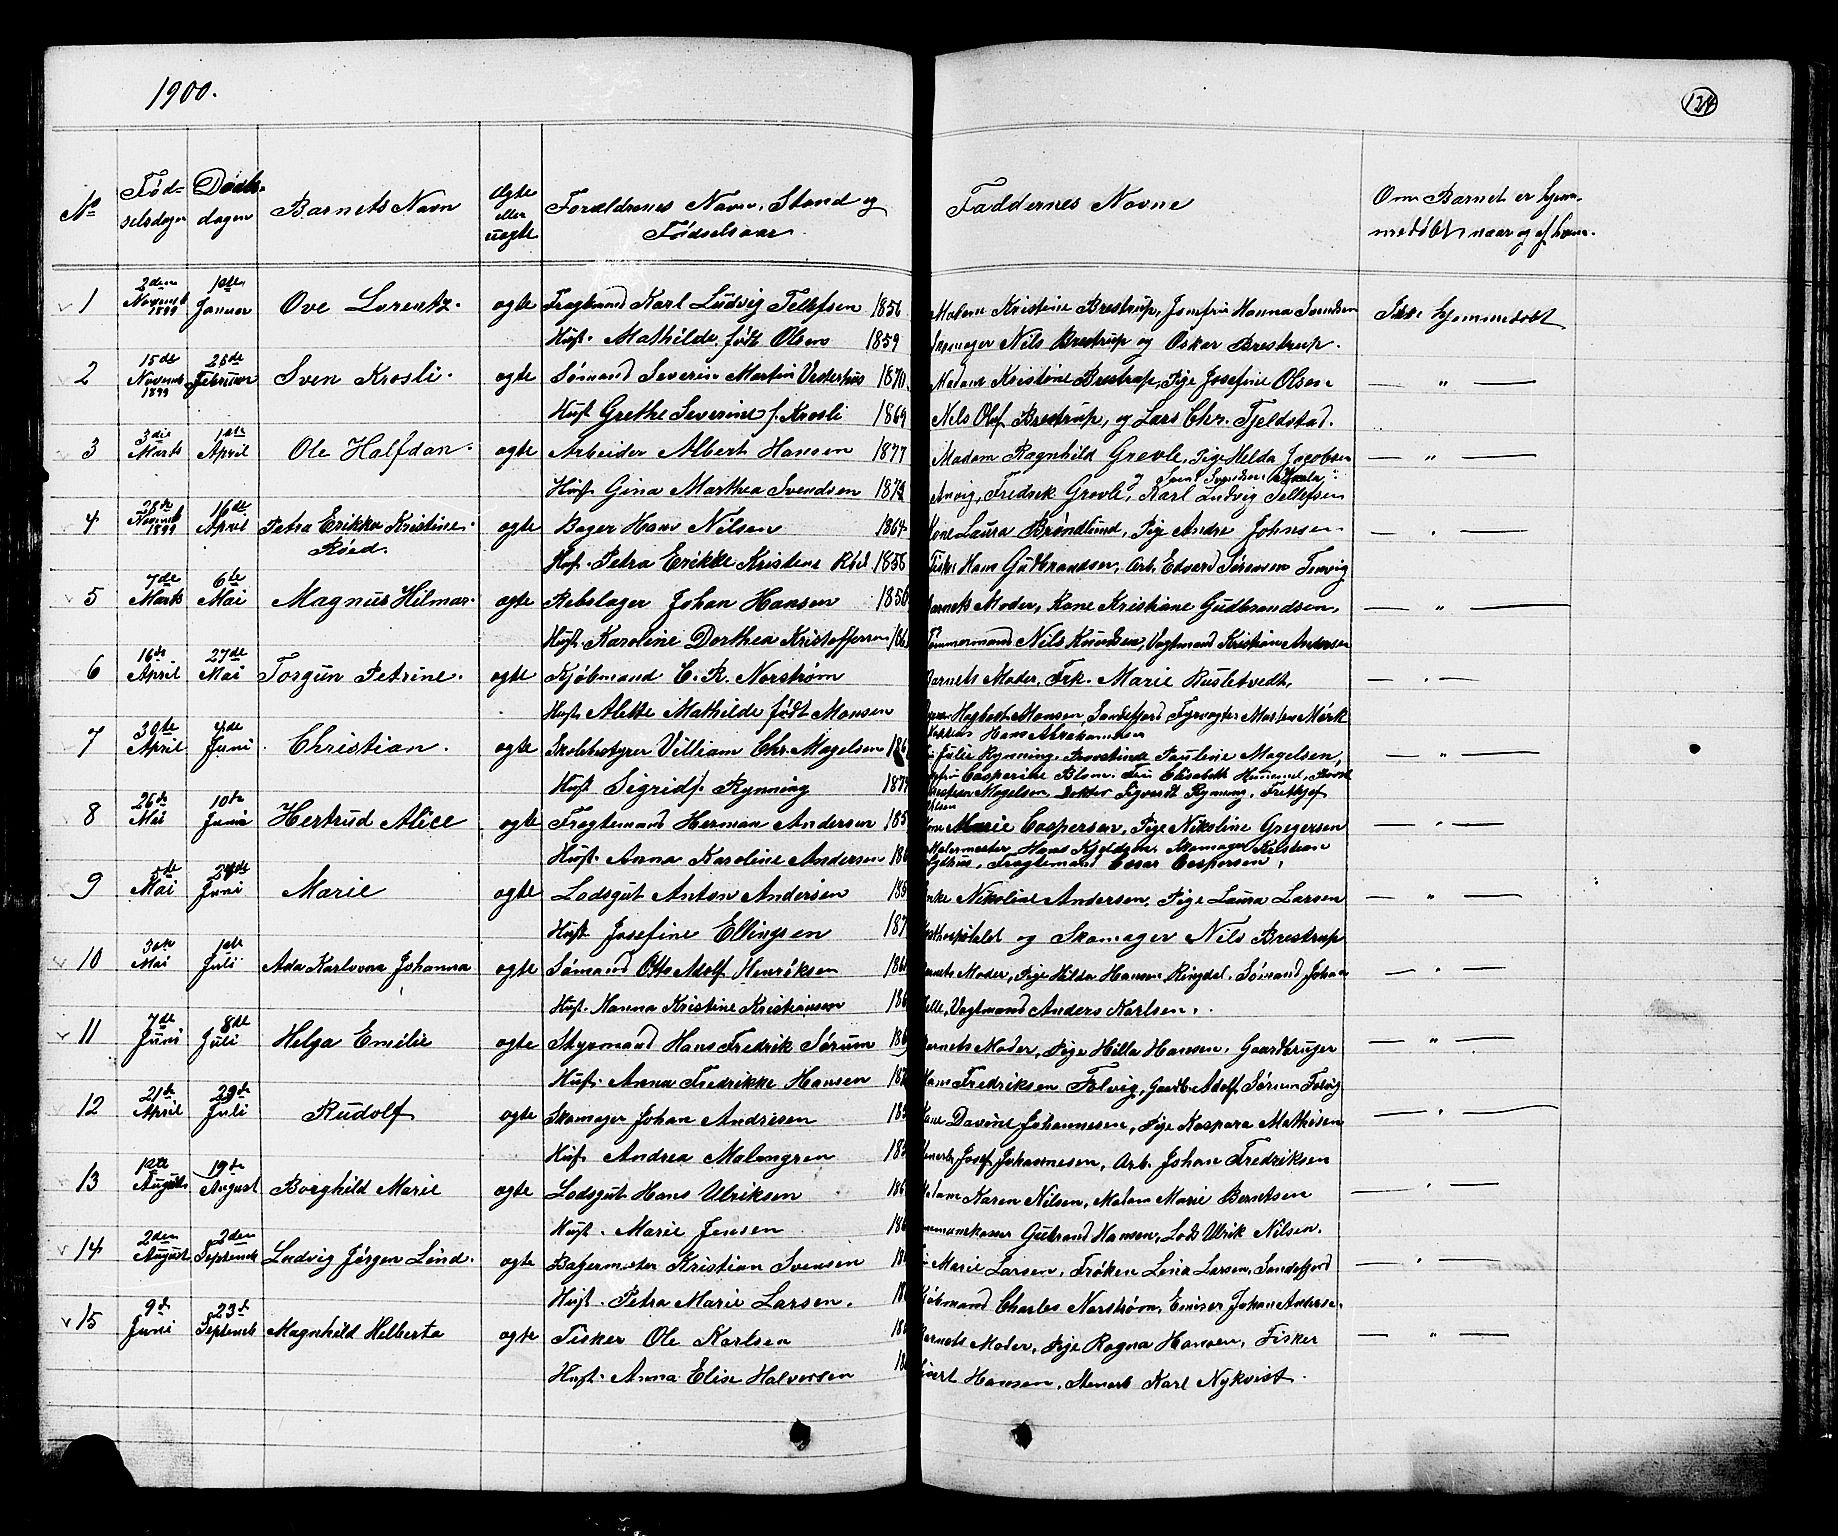 1900.
124
No
Fød-
selsdagen
Døds-
dagen
Barnets Navn
Ægte
eller
uægte
Forældrenes Navn, Stand og
Fødselsaar.
Faddernes Navne
Om Barnet er hjem-
medøbt, naar og af hvem.
1 2den Novemb 1899 1ste Januar Ove Lorentz. ægte Fragtmand Karl Ludvig Tellefsen 1856 Madam Kristine Brestrup, Jomfru Hanna Ikke hjemmedøbt
Hust. Mathilde født Olsen 1859 Nils Brestrup og Oskar Brestrup.
2 15de Novemb 1899 25de Februar Sven Krosli. ægte Sømand Severin Martin Vesterhus 1870. Madam Kristine Brestrup, Pige Josefine Olsen — " —
Hust Grethe Severine f. Krosli 1869 Nils Olaf Brestrup, og Lars Chr. Fjeldstad.
3 3die Marts 1ste April Ole Halfdan. ægte Arbeider Albert Hansen 1877 Madam Ragnhild Grevle, Pige Helda Jacobsen — " —
Hust. Gina Marthea Svendsen Fredrik Grevle, Karl Ludvig Tellefsen
4 28de Novemb 1899 16de April Petra Erikke Kristine ægte Bager Hans Nilsen 1864 Kone Laura Brøndlund, Pige Andre Johnsen — " —
Røed.
Hust. Petra Erikke Kristine Røed Hans Gudbrandsen, Arb. Edvard Sørensen
5 7de Marts 6te Mai Magnus Hilmar. ægte Rebslager Johan Hansen 1856 Barnets Moder, Kone Kristiane Gudbrandsen, — " —
Hust. Karoline Dorthea Kristoffersen Tømmermand Nils Knudsen, Vogtmand Kristian Andersen
6 16de April 27de Mai Torgun Petrine. ægte Kjøbmand C. R. Norstrøm Barnets Moder, Frk. Marie Rustetvedt, — " —
Hust. Alette Mathilde født Monsen Hagbart Monsen, Sandefjord, Morten Mørk
7 30te April 4de Juni Christian. ægte Skolebestyrer Villiam Chr. Magelsen Hans Abrahamsen
Julie Rynning. Provstinde Pauline Magelsen, — " —
Hust Sigrid f. Rynning Casperike Blom. Fru Elisabeth
Magelsen, Doktor Sigvardt Rynning. Frithjof
8 26de Mai 10de Juni Hertrud Alice ægte Fragtemand Herman Andersen Kone Marie Caspersen, Pige Nikoline Gregersen — " —
Hust. Anna Karoline Andersen Malermester Hans Kjeldsen, Skomager Kristian
Fragtemand Cæsar Caspersen.
9 5de Mai 24de Juni Marie ægte Lodsgut Anton Andersen Enke Nikoline Andersen, Pige Laura Larsen — " —
Hust Josefine Ellingsen og Skomager Nils Brestrup
10 30te Mai 1ste Juli Ada Karlvona Johanna ægte Sømand Otto Adolf Henriksen Barnets Moder, Pige Hilda Hansen Ringdal. Sømand Johan — " —
Hust. Hanna Kristine Kristiansen Vogtmand Anders Karlsen.
11 7de Juni 8de Juli Helga Emilie ægte Styrmand Hans Fredrik Sørum Barnets Moder, Pige Hilla Hansen. Gaardbruger — " —
Hust. Anna Fredrikke Hansen Hans Fredriksen Folvig, Gaardb. Adolf Sørum Folvig
12 21de April 29de Juli Rudolf ægte Skomager Johan Andresen Kone Davine Johannesen, Pige Kaspara Mathisen — " —
Hust. Andrea Malmgren Stenarb. Josef Johannesen, Arb. Johan Fredriksen
13 1ste August 19de August Borghild Marie ægte Lodsgut Hans Ulriksen Madam Karen Nilsen, Madam Marie Berntsen — " —
Hust. Marie Jensen Gutrand Hansen, Lods Ulrik Nilsen.
14 2den August 2den Septemb Ludvig Jørgen Lind. ægte Bagermester Kristian Svensen Marie Larsen, Frøken Lina Larsen, Sandefjord — " —
Hust. Petra Marie Larsen. Kjøbmand Charles Norstrøm, Johan Anderse
15 9de Juni 23de Septemb Magnhild Helberta ægte Fisker Ole Karlsen Barnets Moder, Pige Ragna Hansen, Fisker — " —
Hust. Anna Elise Halvorsen Hansen, Stenarb Karl Nykvist.